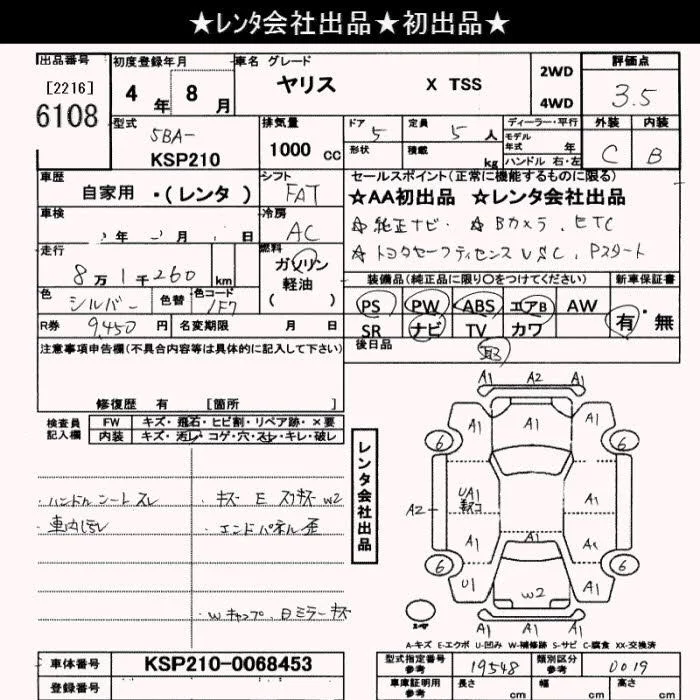 ★レンタ会社出品★初出品★
出品番号
[2216]
6108
初度登録年月
4 年 8 月
車名 グレード
ヤリス X TSS
2WD
4WD
評価点
3.5
外装 内装
C B
型式
5BA-
KSP210
排気量
1000 cc
ドア 5
定員 5 人
形状
積載 kg
ディーラー・平行
モデル
年式 年
ハンドル 右・左
車歴
自家用 ・(レンタ)
シフト
FAT
セールスポイント(正常に機能するものに限る)
☆AA初出品 ☆レンタ会社出品
☆純正ナビ ☆Bカメラ、ETC
☆トヨタセーフティセンス VSC、Pスタート
車検
年 月 日
冷房
AC
走行
8万1千260 km
燃料
ガソリン
軽油
( )
色
シルバー
色替
色コード
1F7
装備品(純正品に限り○をつけてください)
PS PW ABS エアB AW
SR ナビ TV カワ
新車保証書
有・無
R券 9,450 円
名変期限 月 日
後日品
取
注意事項申告欄(不具合内容等は具体的に記入して下さい)
修復歴 有 [箇所 ]
検査員
記入欄
FW キズ・飛石・ヒビ割・リペア跡・×要
内装 キズ・汚レ・コゲ・穴・スレ・キレ・破レ
・ハンドル シート スレ
・車内汚レ
・キズ E スリキズ W2
・エンドパネル歪
・Wキャップ、日ミラーキズ
レンタ会社出品
A1 A2 A1
A1 A1 A1
6 6
A1
UA1
A1
A2
A1 A1
6 6
U1 W2 A1
A1 A1 A1
A-キズ E-エクボ U-凹み W-補修跡 S-サビ C-腐食 XX-交換済
車体番号 KSP210-0068453
登録番号
型式指定番号
参考
19548
類別区分
参考
0019
車庫証明用
参考
長さ cm 幅 cm 高さ cm